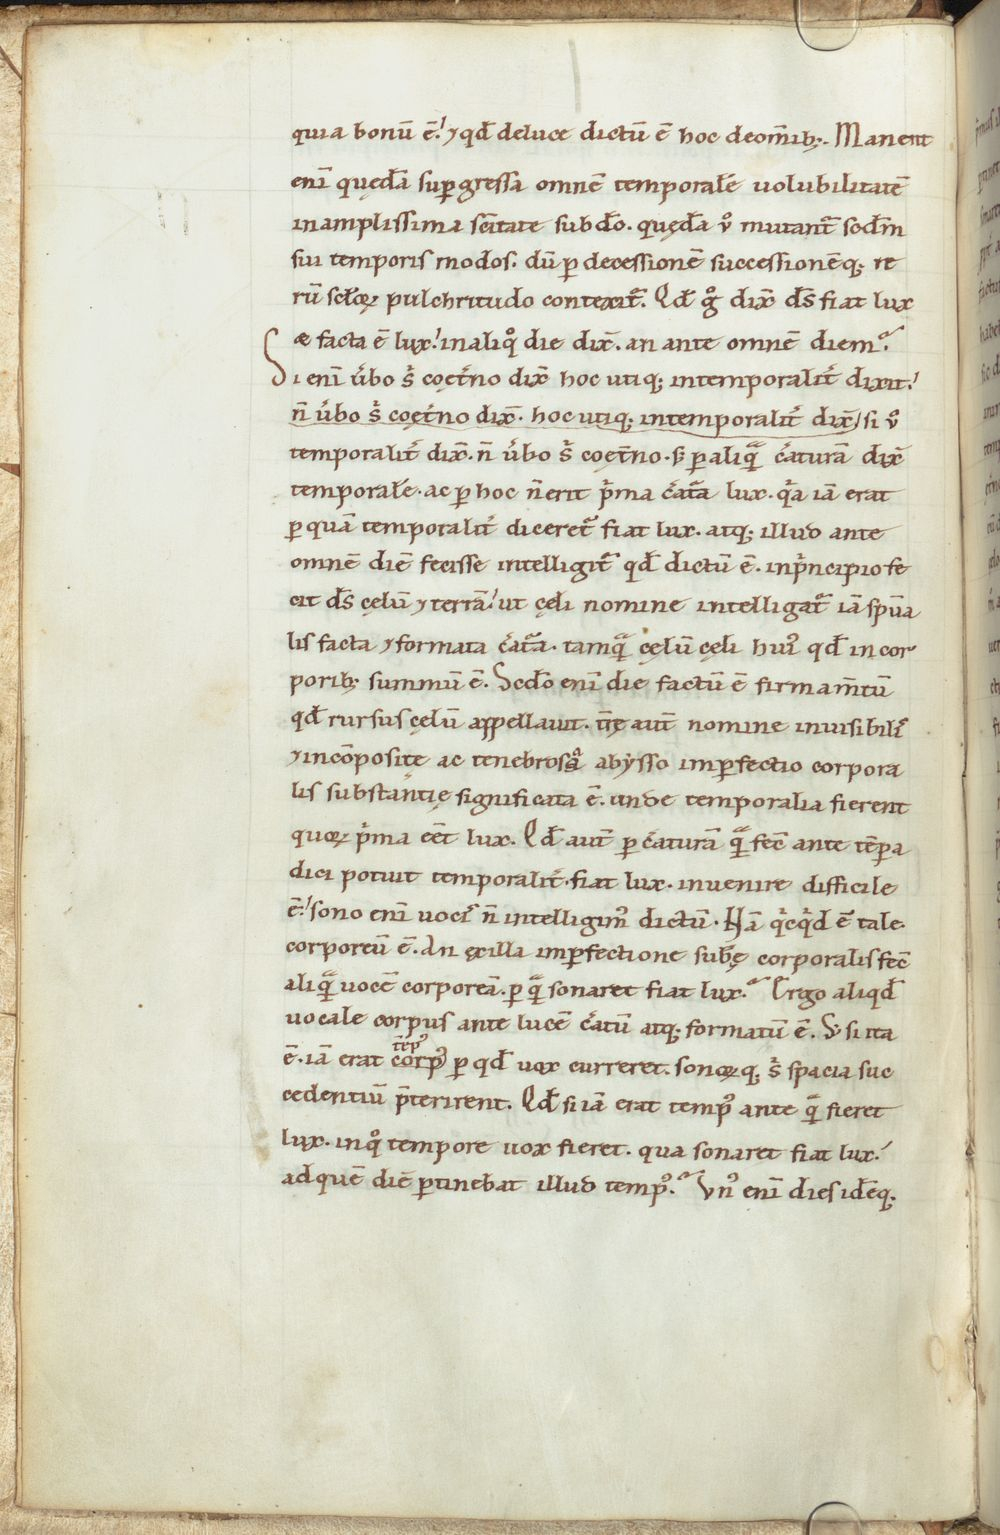 quia bonū ē. ⁊ qđ de luce dictū ē hoc de om̄ib;. Manent
enī quędā suꝑgressa omnē temporalē uolubilitatē
in amplissima sc̄itate sub dō. quędā ů mutant̄ scd̄m
sui temporis modos. dū ꝑ decessionē successionēq; re
rū scl̄oꝝ pulchritudo contexit̄. Qđ g̊ dix̄ ds̄ fiat lux
æ facta ē lux. in aliq̊ die dix̄. an ante omnē diem.
Si enī ůbo s̄ coęt̄no dix̄ hoc utiq; intemporalit̄ dixit.
n̄ ůbo s̄ coęt̄no dix̄. hoc utiq; intemporalit̄ dix̄ si ů
temporalit̄ dix̄. n̄ ůbo s̄ coęt̄no. s; ꝑ aliqͣ̄ c̄aturā dix̄
temporalē. ac ꝑ hoc n̄ erit pͥma c̄atͣa lux. qͥa iā erat
ꝑ quā temporalit̄ diceret̄ fiat lux. atq; illud ante
omnē diē fecisse intelligit̄ qđ dictū ē. in pͥncipio fe
cit ds̄ cęlū ⁊ terrā. ut cęli nomine intelligat̄ iā spūa
lis facta ⁊ formata c̄atͣa. tamqͣ̄ cęlū cęli huiꝰ qđ in cor
porib; summū ē. Scd̄o enī die factū ē firmam̄tū
qđ rursus cęlū appellauit. t̄rę aut̄ nomine inuisibilꝭ
⁊ incōposite ac tenebrosa abysso imꝑfectio corpora
lis substantię significata ē. unde temporalia fierent
quoꝝ pͥma eēt lux. Qđ aut̄ ꝑ c̄aturā qͣ̄ fec̄ ante tēꝑa
dici potuit temporalit̄. fiat lux. inuenire difficile
ē. sono enī uocꝭ n̄ intelligimꝰ dictū. Nā qͥcqͥd ē tale.
corporeū ē. An ex illa imꝑfectione subę̄ corporalis fec̄
aliqͣ̄ uocē corporeā. ꝑ qͣ̄ sonaret fiat lux. Ergo aliqđ
uocale corpus ante lucē c̄atū atq; formatū ē. Ů si ita
tēpꝰ
ē. iā erat corpꝰ ꝑ qđ uox curreret. sonoꝝq; s̄ spacia suc
cedentiū p̄terirent. Qđ si iā erat tempꝰ ante qͣ̄ fieret
lux. in q̊ tempore uox fieret. qua sonaret fiat lux.
ad quē diē ꝑtinebat illud tempꝰ. Vnꝰ enī dies idēq;